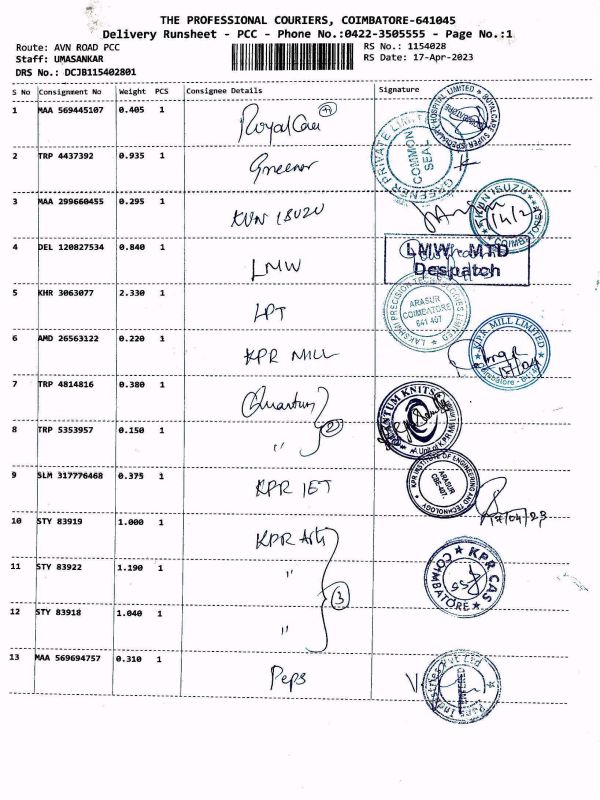 THE PROFESSIONAL COURIERS, COIMBATORE-641045
Delivery Runsheet - PCC - Phone No.:0422-3505555 - Page No.:1
Route: AVN ROAD PCC
RS No.: 1154028
Staff: UMASANKAR
RS Date: 17-Apr-2023
DRS No.: DCJB115402801
S No Consignment No Weight PCS Consignee Details Signature
1 MAA 569445107 0.405 1 RoyalCare
ROYALCARE SUPER SPECIALITY HOSPITAL LIMITED
2 TRP 4437392 0.935 1 Greener
GREENER PRIVATE LIMITED
COMMON
SEAL
3 MAA 299660455 0.295 1 KVN ISUZU
KVN ISUZU
4 DEL 120827534 0.840 1 LMW
LMW MTD
Despatch
5 KHR 3063077 2.330 1 LPT
LAKSHMI PRECISION TECHNOLOGIES LIMITED
ARASUR
COIMBATORE
641 407
6 AMD 26563122 0.220 1 KPR MILL
K.P.R. MILL LIMITED
7 TRP 4814816 0.380 1 Quantum
QUANTUM KNITS
8 TRP 5353957 0.150 1 " 2
9 SLM 317776468 0.375 1 KPR IET
KPR INSTITUTE OF ENGINEERING AND TECHNOLOGY
ARASUR
CBE-407
17/04/23
10 STY 83919 1.000 1 KPR Arts
11 STY 83922 1.190 1 "
KPR CAS
COIMBATORE
3
12 STY 83918 1.040 1 "
13 MAA 569694757 0.310 1 Peps
Peps Industries Pvt Ltd